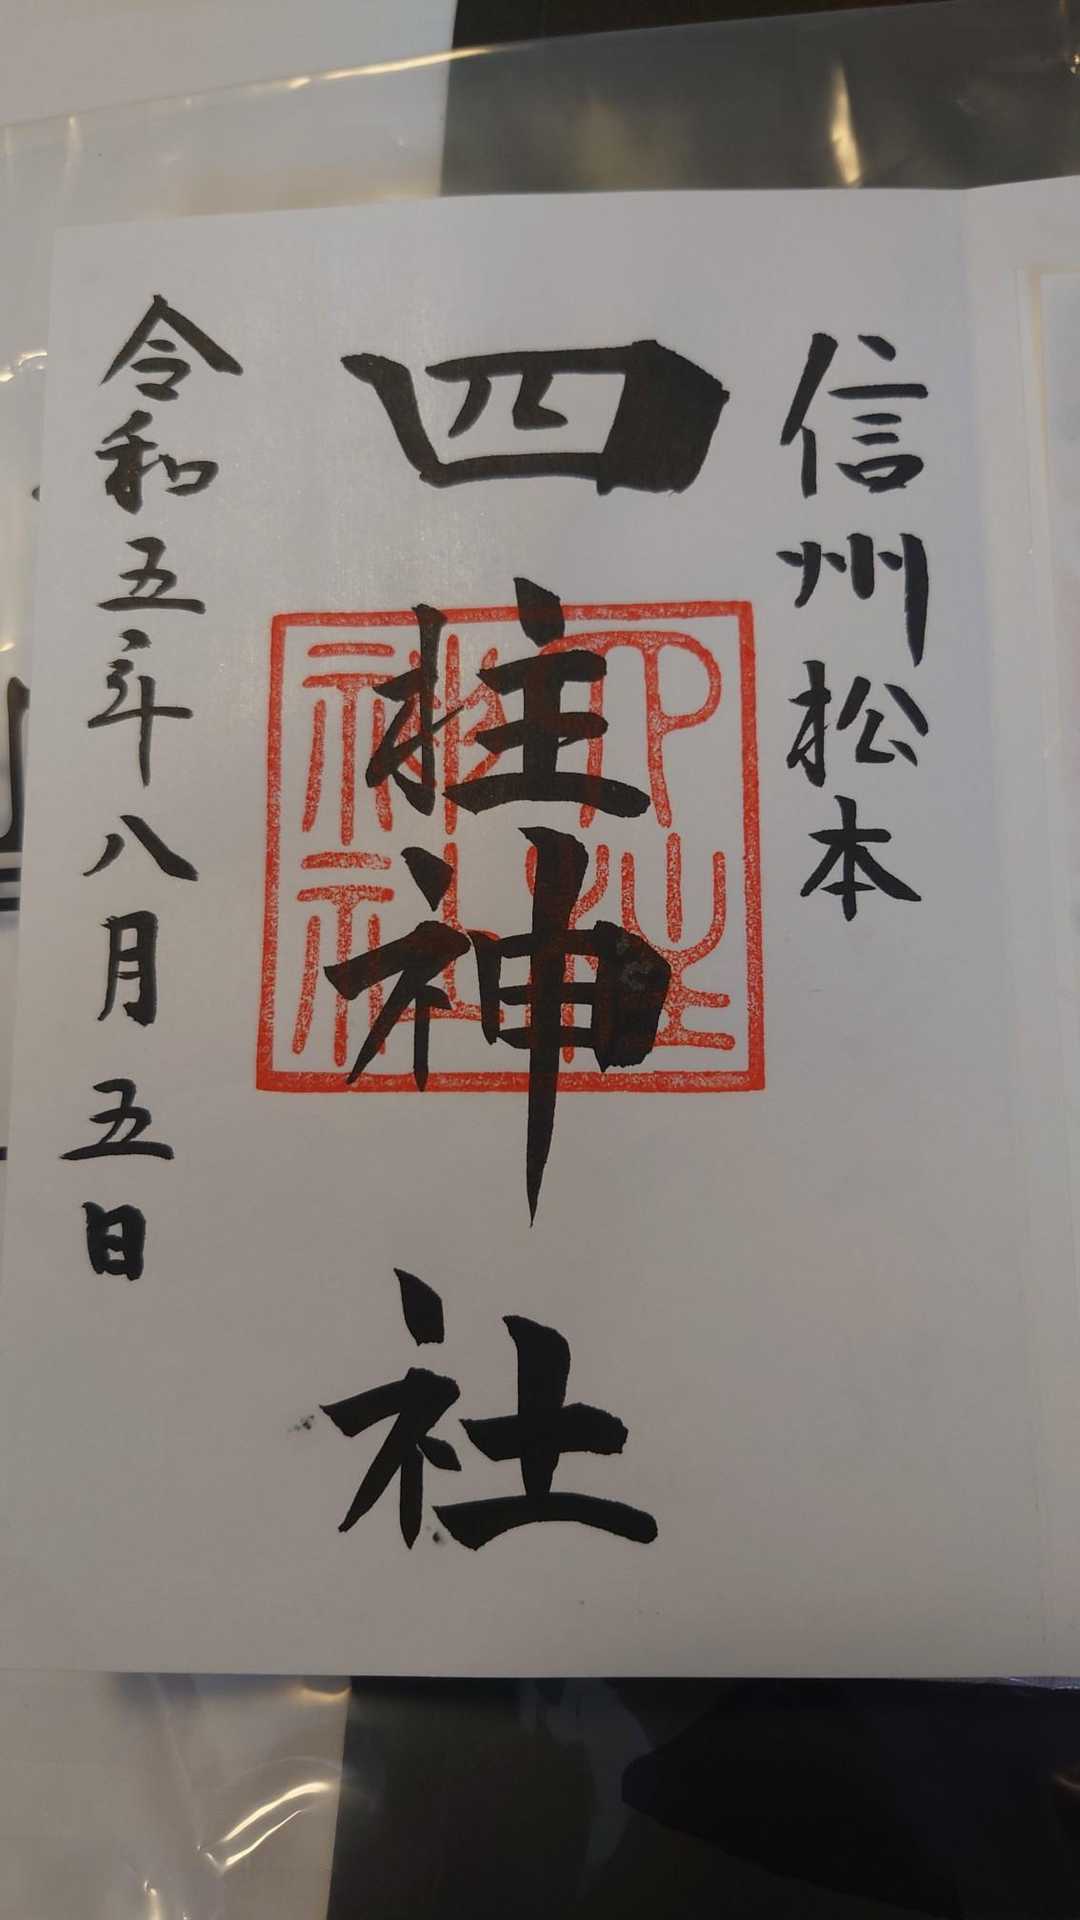 信州松本
四柱神社
四柱神社
令和五年八月五日